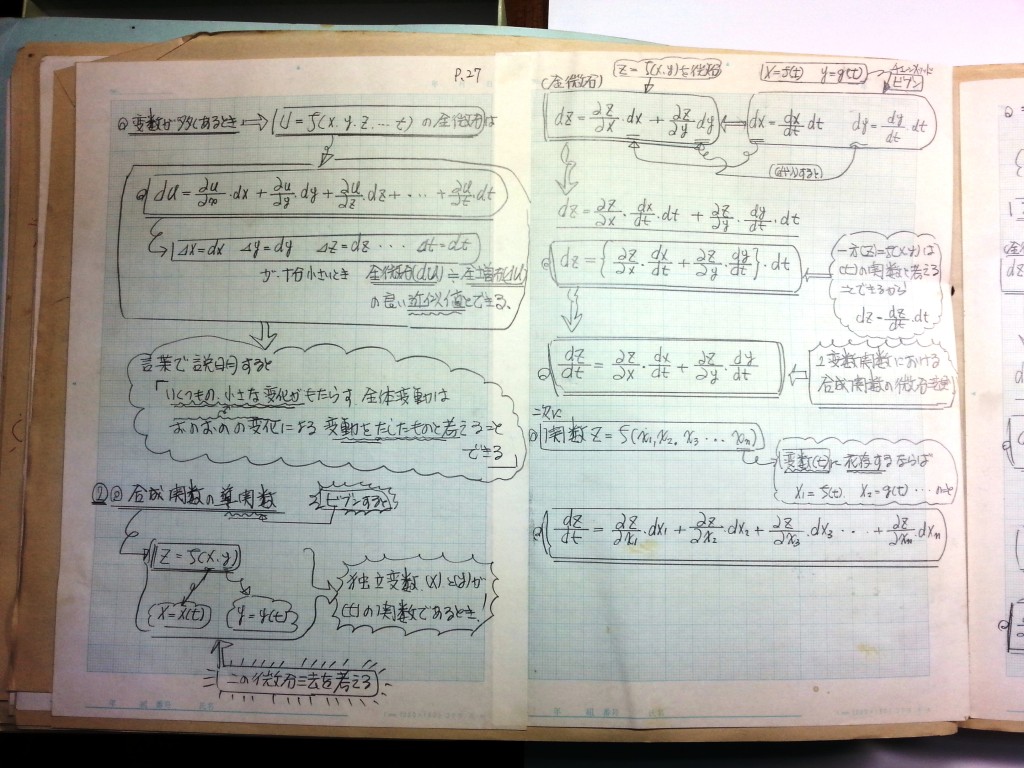 P.27
変数が多くあるとき ⇒ U = f(x, y, z, … t) の全微分は
dU = ∂u/∂x・dx + ∂u/∂y・dy + ∂u/∂z・dz + … + ∂U/∂t・dt
Δx = dx Δy = dy Δz = dz … Δt = dt
が十分小さいとき 全微分(dU) ≒ 全増分(ΔU)
の良い近似値とできる、
言葉で説明すると
「いくつもの、小さな変化がもたらす、全体変動は
おのおのの変化による変動をたしたものと考えること
できる」
② 合成関数の導関数
ビブンすると
Z = f(x, y)
x = x(t) y = y(t)
独立変数 (x)と(y)が
(t)の関数であるとき、
この微分法を考える
(全微分) Z = f(x, y)を微分 x = f(t) y = g(t)
ビブン
dz = ∂z/∂x・dx + ∂z/∂y・dy dx = dx/dt・dt dy = dy/dt・dt
dz = ∂z/∂x・dx/dt・dt + ∂z/∂y・dy/dt・dt
dz = {∂z/∂x・dx/dt + ∂z/∂y・dy/dt}・dt
一方(Z) = f(x, y)は
(t)の関数と考える
とできるから
dz = dz/dt・dt
dz/dt = ∂z/∂x・dx/dt + ∂z/∂y・dy/dt
1変数関数における
合成関数の微分法
関数 Z = f(x₁, x₂, x₃ … xₙ)
変数(t)に依存するならば
x₁ = f(t), x₂ = g(t) …
dz/dt = ∂z/∂x₁・dx₁ + ∂z/∂x₂・dx₂ + ∂z/∂x₃・dx₃ … + ∂z/∂xₙ・dxₙ